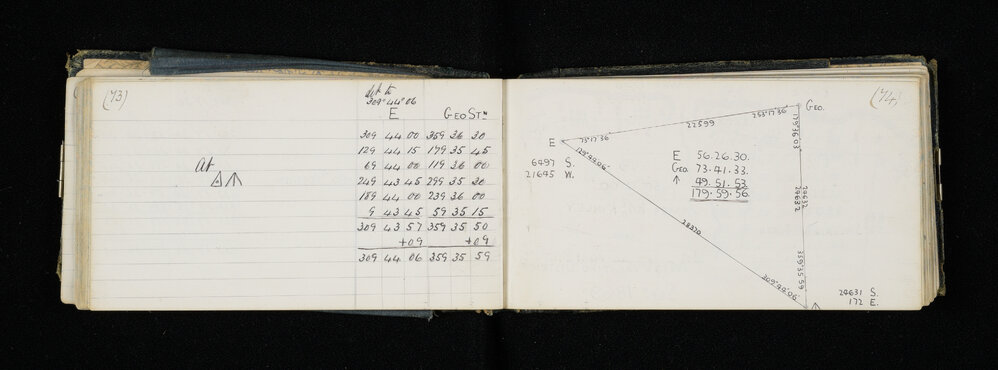 (73)
309° 44' 06
E GEO STN
309 44 00 359 36 30
129 44 15 179 35 45
69 44 00 119 36 00
249 43 45 299 35 30
189 44 00 239 36 00
9 43 45 59 35 15
309 43 57 359 35 50
+09 +09
309 44 06 359 35 59
At
(74)
GEO.
253°17'36
22599
73°17'36
E
129°44'06"
6497 S.
21645 W.
179°36'03"
E 56.26.30.
GEO. 73.41.33.
↑ 49.51.53.
179.59.56.
24632
24632
28370
359°35'59
309°44'06"
24631 S.
172 E.